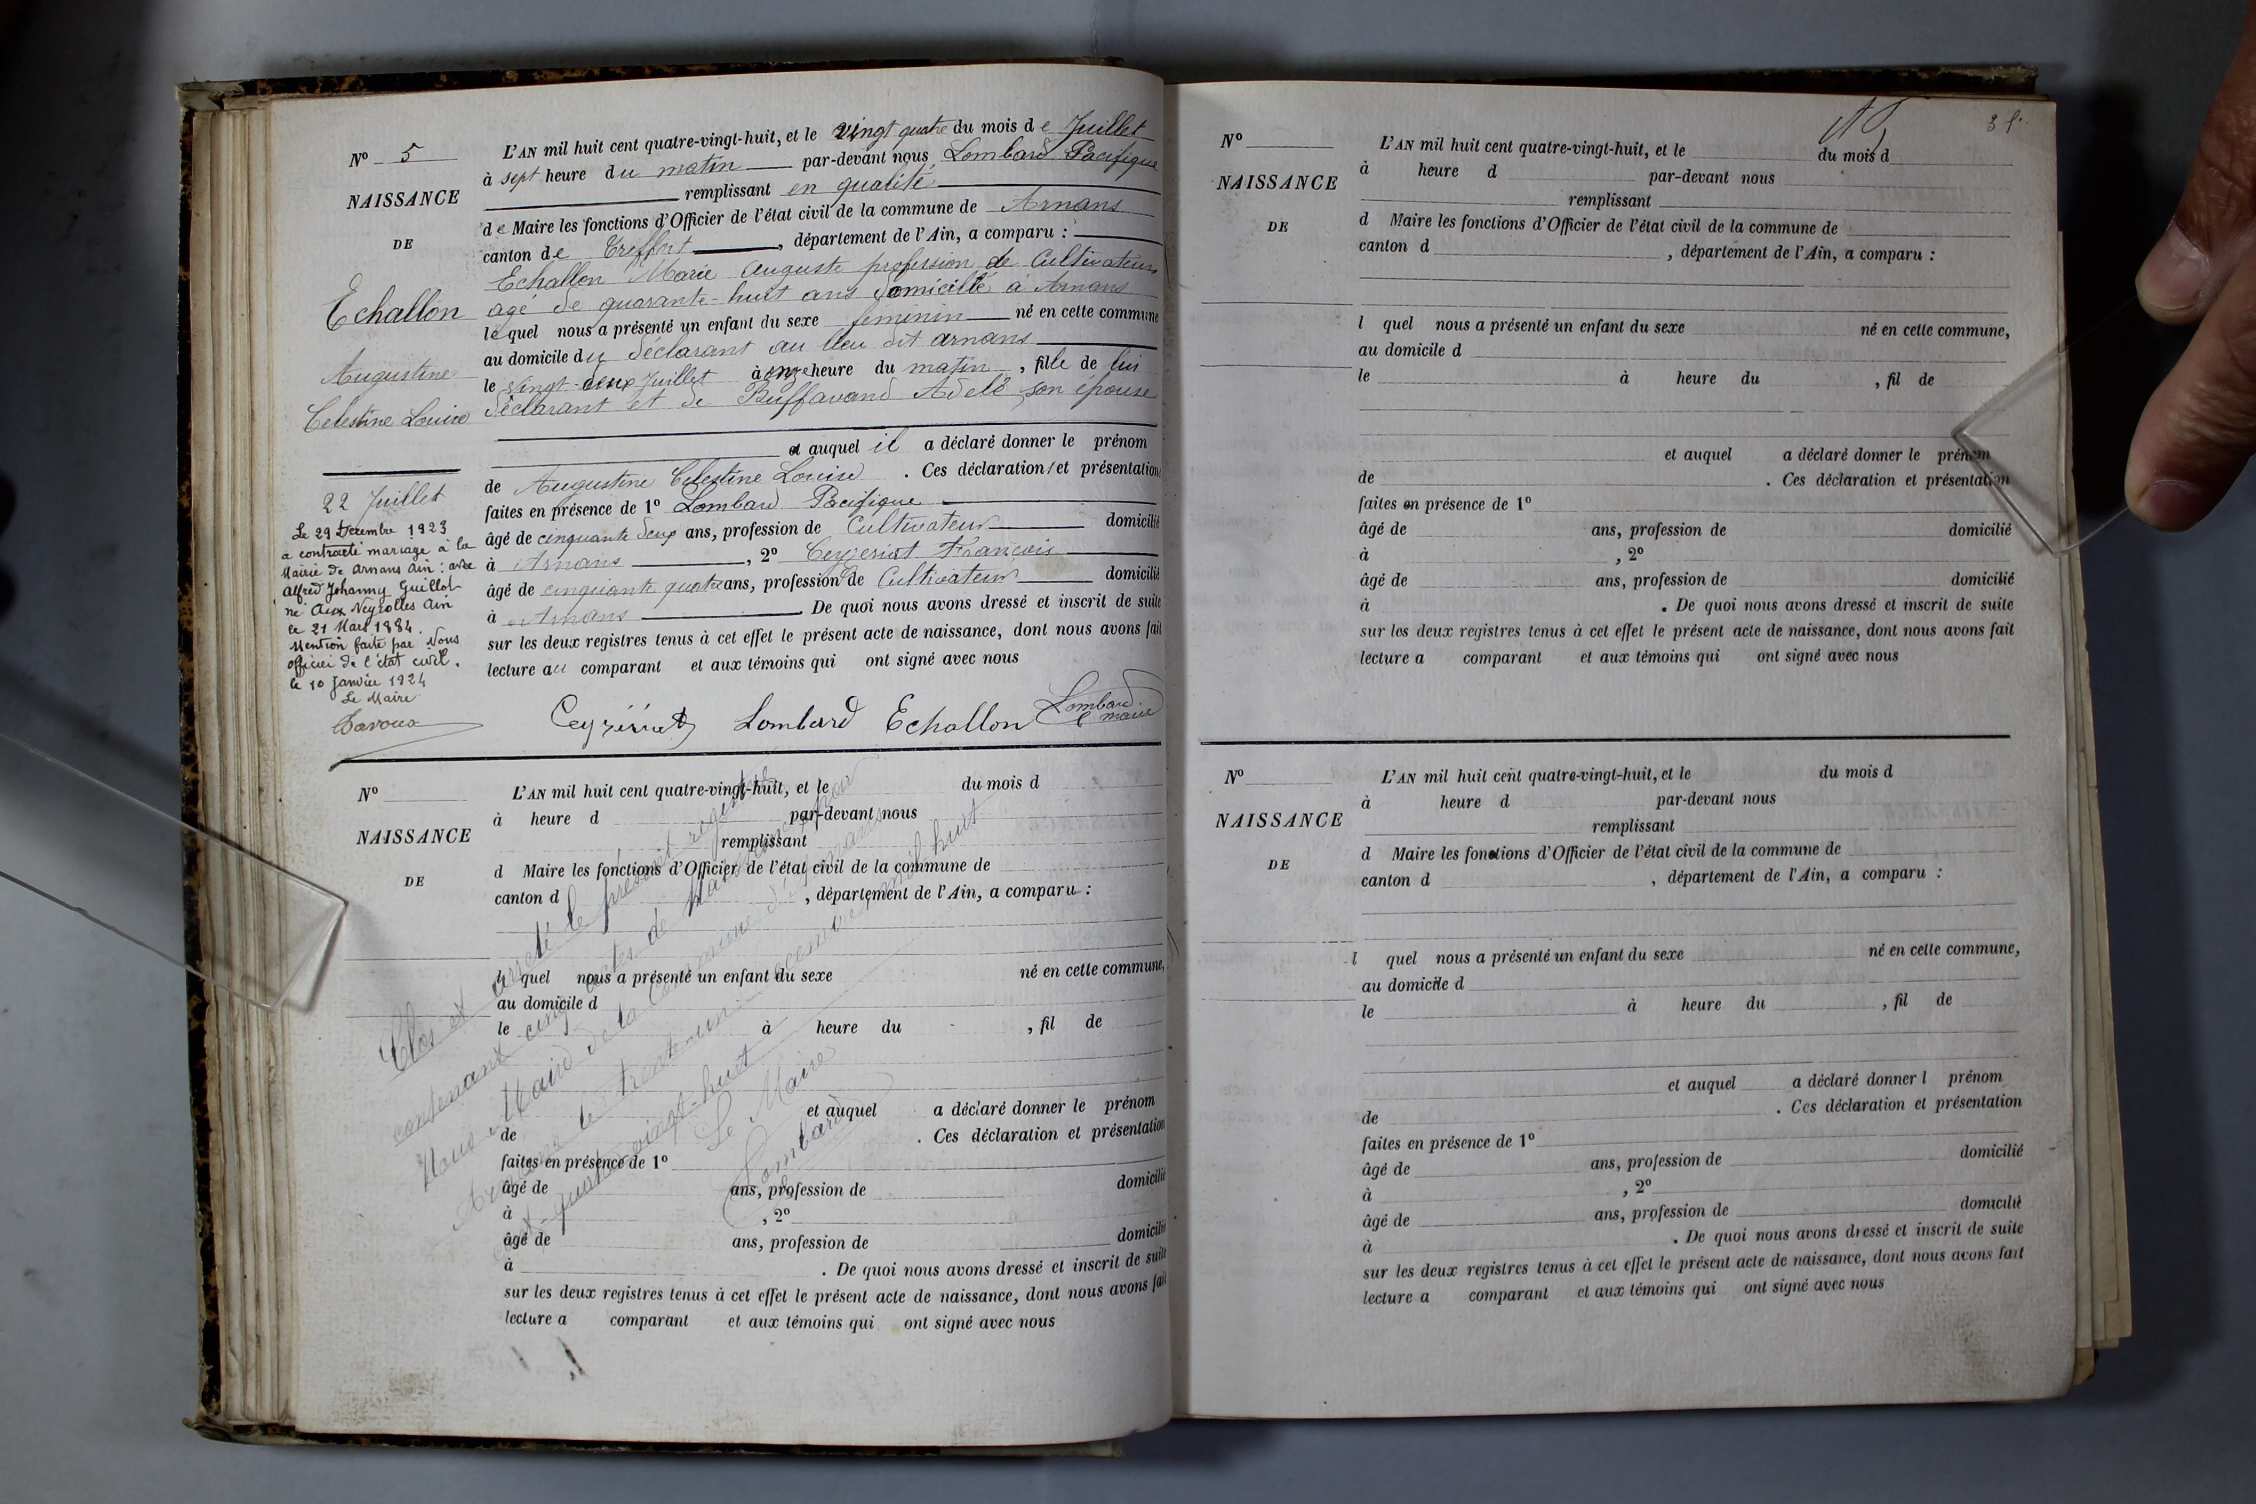 N° 5
NAISSANCE
DE
Echallon
Augustine
Celestine Louise
22 Juillet
Le 29 Decembre 1923
a contracté mariage à la
Mairie de Arnans Ain : avec
Alfred Johanny Guillot
né Aux Neyrolles Ain
le 21 Mars 1884.
Mention faite par Nous
officier de l'état civil.
le 10 Janvier 1924
Le Maire
L'AN mil huit cent quatre-vingt-huit, et le vingt quatre du mois de Juillet
à sept heure du matin par-devant nous Lombard Pacifique
remplissant en qualité
de Maire les fonctions d'Officier de l'état civil de la commune de Arnans
canton de Treffort, département de l'Ain, a comparu :
Echallon Marie Auguste profession de Cultivateur
agé de quarante-huit ans domicilié à Arnans
le quel nous a présenté un enfant du sexe feminin né en cette commune
au domicile du déclarant au lieu dit arnans
le vingt-deux Juillet à onze heure du matin, fille de lui
déclarant et de Buffavand Adele son épouse
et auquel il a déclaré donner le prénom
de Augustine Celestine Louise. Ces déclaration et présentation
faites en présence de 1° Lombard Pacifique
âgé de cinquante deux ans, profession de Cultivateur domicilié
à Arnans, 2° Ceyzeriat François
âgé de cinquante quatre ans, profession de Cultivateur domicilié
à Arnans. De quoi nous avons dressé et inscrit de suite
sur les deux registres tenus à cet effet le présent acte de naissance, dont nous avons fait
lecture au comparant et aux témoins qui ont signé avec nous
Ceyzériat Lombard Echallon Lombard
maire
N°
NAISSANCE
DE
L'AN mil huit cent quatre-vingt-huit, et le du mois d
à heure d par-devant nous
remplissant
d Maire les fonctions d'Officier de l'état civil de la commune de
canton d , département de l'Ain, a comparu :
l quel nous a présenté un enfant du sexe né en cette commune,
au domicile d
le à heure du , fil de
et auquel a déclaré donner le prénom
de . Ces déclaration et présentation
faites en présence de 1°
âgé de ans, profession de domicilié
à , 2°
âgé de ans, profession de domicilié
à . De quoi nous avons dressé et inscrit de suite
sur les deux registres tenus à cet effet le présent acte de naissance, dont nous avons fait
lecture a comparant et aux témoins qui ont signé avec nous
Clos et arrêté le présent registre
contenant cinq actes de naissance par
Nous Maire de la Commune d'Arnans
Arnans le trente un décembre mil huit
cent quatre-vingt-huit
Le Maire
Lombard
N°
NAISSANCE
DE
L'AN mil huit cent quatre-vingt-huit, et le du mois d
à heure d par-devant nous
remplissant
d Maire les fonctions d'Officier de l'état civil de la commune de
canton d , département de l'Ain, a comparu :
l quel nous a présenté un enfant du sexe né en cette commune,
au domicile d
le à heure du , fil de
et auquel a déclaré donner le prénom
de . Ces déclaration et présentation
faites en présence de 1°
âgé de ans, profession de domicilié
à , 2°
âgé de ans, profession de domicilié
à . De quoi nous avons dressé et inscrit de suite
sur les deux registres tenus à cet effet le présent acte de naissance, dont nous avons fait
lecture a comparant et aux témoins qui ont signé avec nous
N°
NAISSANCE
DE
L'AN mil huit cent quatre-vingt-huit, et le du mois d
à heure d par-devant nous
remplissant
d Maire les fonctions d'Officier de l'état civil de la commune de
canton d , département de l'Ain, a comparu :
l quel nous a présenté un enfant du sexe né en cette commune,
au domicile d
le à heure du , fil de
et auquel a déclaré donner l prénom
de . Ces déclaration et présentation
faites en présence de 1°
âgé de ans, profession de domicilié
à , 2°
âgé de ans, profession de domicilié
à . De quoi nous avons dressé et inscrit de suite
sur les deux registres tenus à cet effet le présent acte de naissance, dont nous avons fait
lecture a comparant et aux témoins qui ont signé avec nous